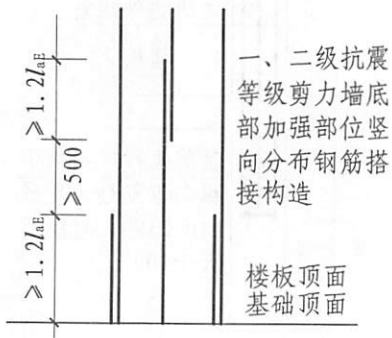 ≥1.2laE
≥500
≥1.2laE
一、二级抗震
等级剪力墙底
部加强部位竖
向分布钢筋搭
接构造
楼板顶面
基础顶面